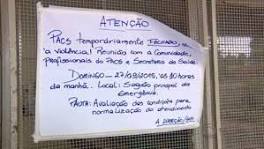 ATENÇÃO
PACS temporariamente FECHADO,
à violência! Reunião com a Comunidade,
Profissionais do PACS e Secretaria de Saúde
DOMINGO - 27/09/2015, às 10 horas
da manhã. Local: principal da
Emergência.
PAUTA: Avaliação das condições para
normalização do atendimento
A DIREÇÃO/PACS